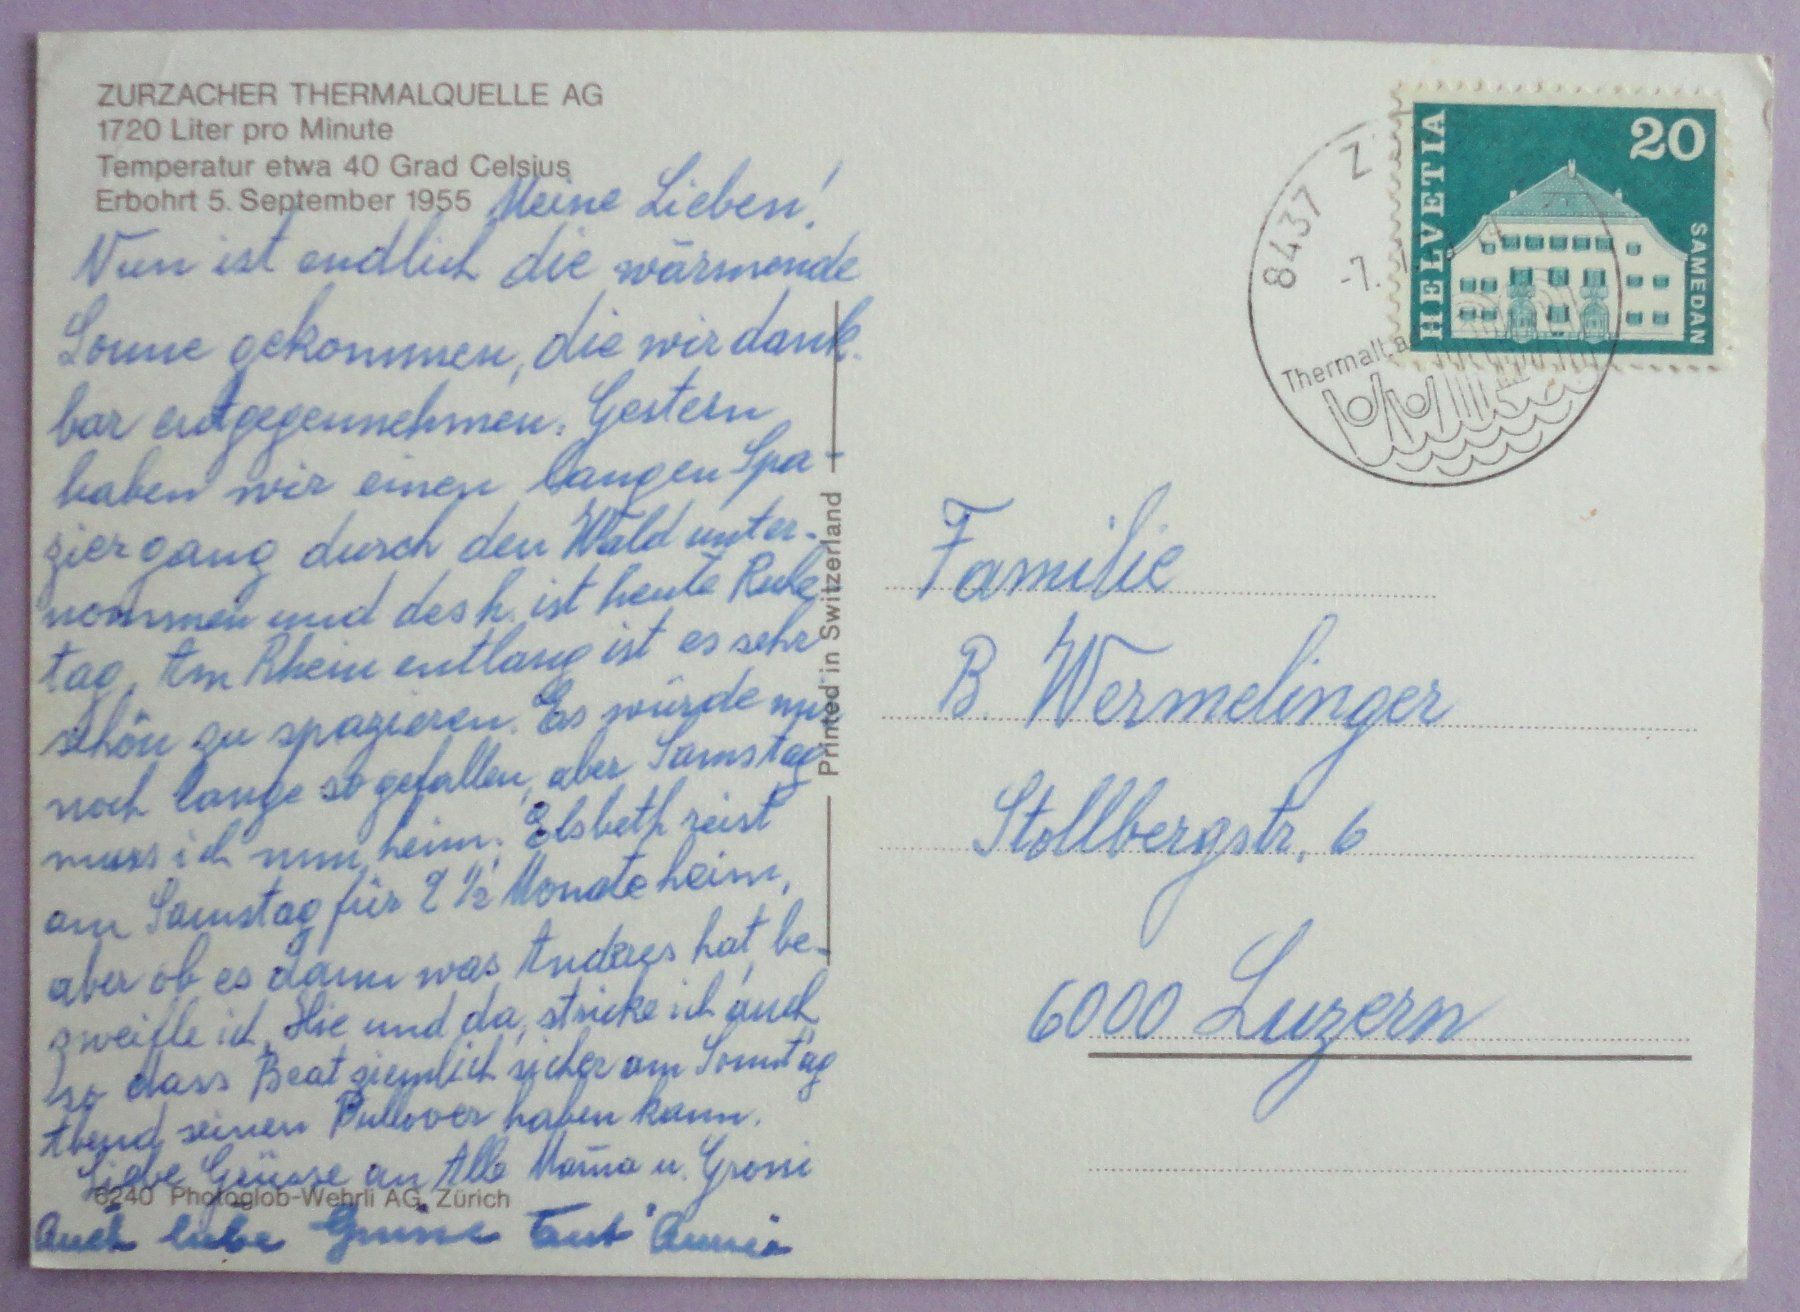 ZURZACHER THERMALQUELLE AG
1720 Liter pro Minute
Temperatur etwa 40 Grad Celsius
Erbohrt 5. September 1955
Meine Lieben!
Nun ist endlich die wärmende
Sonne gekommen, die wir dank-
bar entgegennehmen. Gestern
haben wir einen langen Spa-
ziergang durch den Wald unter-
nommen und desh. ist heute Ruhe
tag. Am Rhein entlang ist es sehr
schön zu spazieren. Es würde mir
noch lange so gefallen, aber Samstag
muss ich nun heim. Elsbeth reist
am Samstag für 2 ½ Monate heim,
aber ob es dann was Anderes hat, be-
zweifle ich. Hie und da, stricke ich auch
so dass Beat ziemlich sicher am Sonntag
Abend seinen Pullover haben kann.
Liebe Grüsse an Alle Mama u. Grossi
Auch liebe Grüsse Tant' Annie
6240 Photoglob-Wehrli AG, Zürich
Printed in Switzerland
HELVETIA
20
SAMEDAN
8437 Z
-7.
Thermalba
Familie
B. Wermelinger
Stollbergstr. 6
6000 Luzern